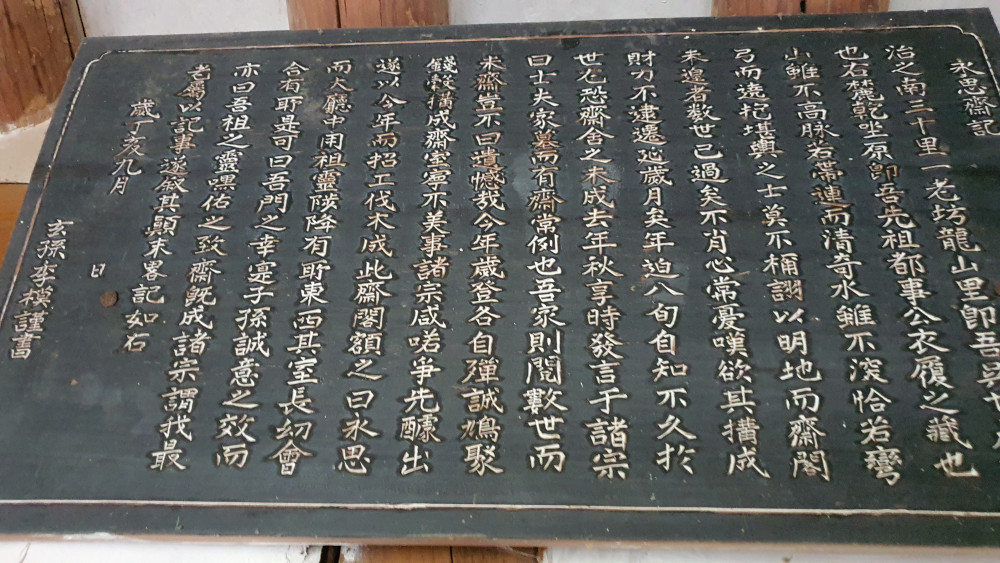 永思齋記
治之南三十里一老坊龍山里即吾吳世
也右麓乾坐原即吾先祖都事公衣履之藏也
山雖不高脉若帶連而清奇水雖不深恰若彎
弓而遶抱堪輿之士莫不稱詡以明地而齋閣
未遑者數世已過矣不肖心常憂嘆欲其搆成
財力不逮遷延歲月矣年迫八旬自知不久於
世尤恐齋舍之未成去年秋享時發言于諸宗
曰士大夫家墓而有齋常例也吾家則閱數世而
未齋豈不曰遺憾哉今年歲登各自殫誠鳩聚
錢穀搆成齋室寧不美事諸宗咸喏爭先醵出
遂以今年而招工伐木成此齋閣額之曰永思
而大廳中用祖靈陟降有所東西其室長幼會
合有所是可曰吾門之幸寔子孫誠意之效而
亦曰吾祖之靈嘿佑之致齋旣成諸宗謂我最
老屬以記事遂敍其顚末畧記如右
歲丁亥九月 日
玄孫李模謹書